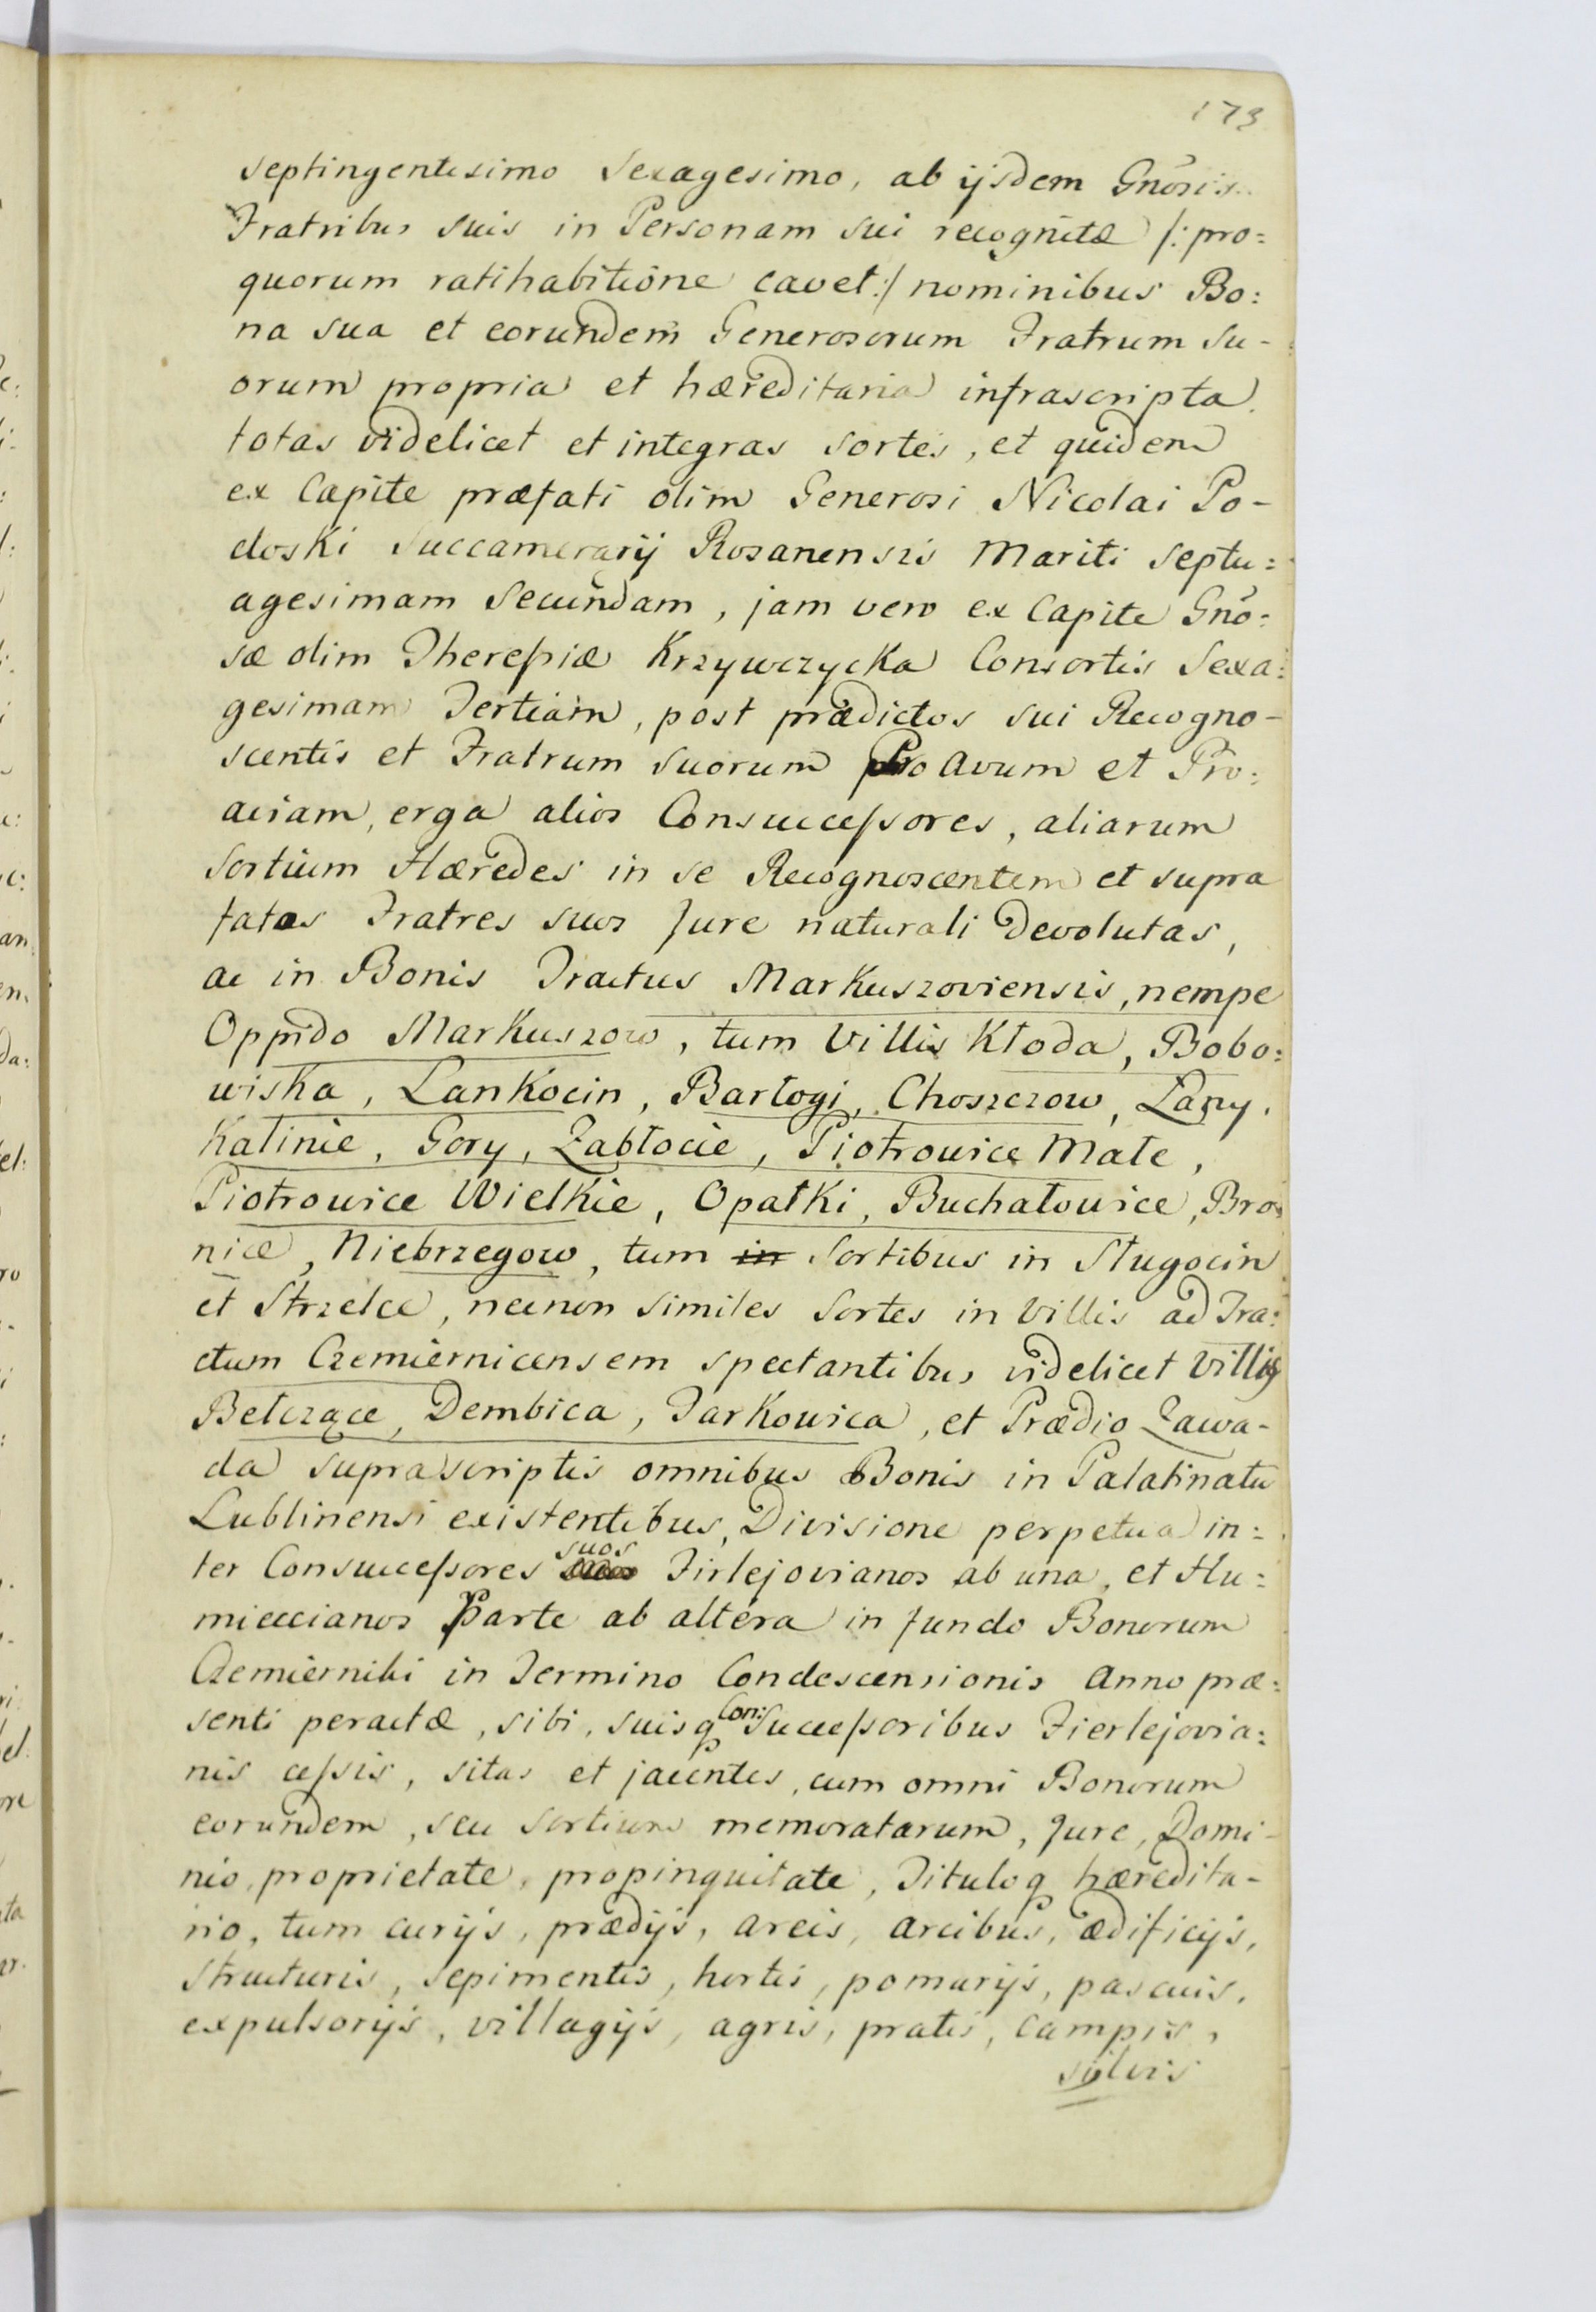 173
septingentesimo Sexagesimo, ab ijsdem Gnõsis
Fratribus suis in Personam sui recognitæ /: pro=
quorum ratihabitione cavet :/ nominibus Bo:
na sua et eorundem Generosorum Fratrum Su-
orum propria et hæreditaria infrascripta
totas videlicet et integras sortes, et quidem
ex Capite præfati olim Generosi Nicolai Po-
doski Succamerarij Rosanensis Mariti Septu=
agesimam Secundam, jam vero ex Capite Gnõ=
sæ olim Theressiæ Krzywczycka Consortis Sexa=
gesimam Tertiam, post prædictos sui Recogno-
scentis et Fratrum suorum Pro Avum et Pro=
aviam, erga alios Consuccessores, aliarum
Sortium Hæredes in se Recognoscentem et supra
fatos Fratres suos Jure naturali devolutas,
ac in Bonis Tractus Markuszoviensis, nempe
Oppido Markuszow, tum Villis Kłoda, Bobo=
wiska, Łankocin, Bartogi, Choszczow, Łany,
Kalinie, Gory, Zabłocie, Piotrowice Małe,
Piotrowice Wielkie, Opatki, Buchałowice, Bro=
nice, Niebrzegow, tum in Sortibus in Sługocin
et Strzelce, necnon similes Sortes in Villis ad Tra=
ctum Czemiernicensem spectantibus videlicet Villis
Bełczące, Dembica, Jarkowica, et Prædio Zawa-
da suprascriptis omnibus Bonis in Palatinatu
Lublinensi existentibus, Divisione perpetua in=
ter Consuccessores suos Firlejovianos ab una, et Hu=
mieccianos Parte ab altera in fundo Bonorum
Czemierniki in Termino Condescensionis Anno præ=
senti peractæ, sibi, suisq Con: Successoribus Fierlejovia=
nis cessis, sitas et jacentes, cum omni Bonorum
eorundem, seu Sortium memoratarum, Jure, Domi-
nio, proprietate, propinquitate, Tituloq hæredita-
rio, tum curijs, prædijs, areis, arcibus, ædificijs,
Structuris, sepimentis, hortis, pomarijs, pascuis,
expulsorijs, villagijs, agris, pratis, Campis,
sylvis